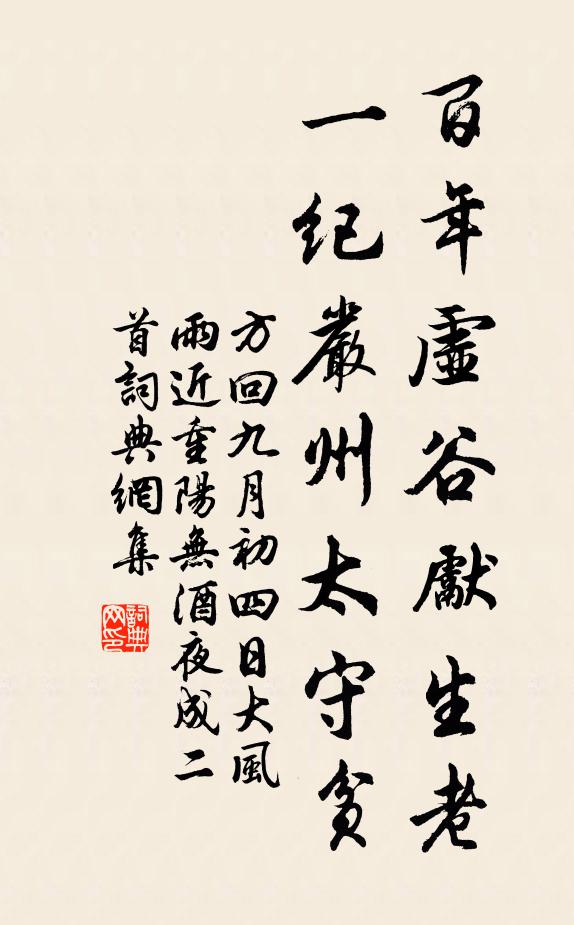 百年虛谷獻生老
一紀嚴州太守貧
方回九月初四日大風
雨近重陽無酒夜成二
首詞典網集
詞典网印